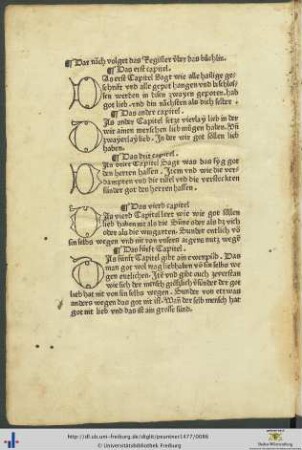 ¶ Dar nach volget das Register über das büchlin.
¶ Das erst capitel.
Das erst Capitel Sagt wie alle hailige ge/
schrifft vnd alle gepot hangen vnd bschlos/
sen werden in disen zwayen gepoten. hab
got lieb. vnd din nächsten als dich selber
¶ Das ander capitel.
Das ander Capitel setzt vierlay lieb in der
wir ainen menschen lieb mügen haben. Vñ
zwayerlay lieb. Jn der wir got söllen lieb
haben.
¶ Das drit capitel.
Das drit Capitel Sagt was das syg got
den herren hassen. Jtem vnd wie die ver/
dampten vnd die tüfel vnd die verstockten
sünder got den herren hassen.
¶ Das vierd capitel
Das vierd Capitel leert wie wir got söllen
lieb haben nit als die
oder als die wingarten. Sunder entlich võ
sin selbs wegen vnd nit von vnsers aigens nutz wegẽ
¶ Das fünfft Capitel.
Das fünfft Capitel gibt ain exempel. Das
man got wol mag lieb haben võ sin selbs we
gen entlichen. Jtẽ vnd gibt ouch zeverstan
wie sich der mensch der got
lieb hat nit von sin selbs wegen. Sunder von ettwas
anders wegen das got nit ist. Wañ der selb mensch hat
got nit lieb vnd das ist ain grosse sünd.
http://dl.ub.uni-freiburg.de/diglit/pruntner1477/0086
© Universitätsbibliothek Freiburg
Baden-Württemberg